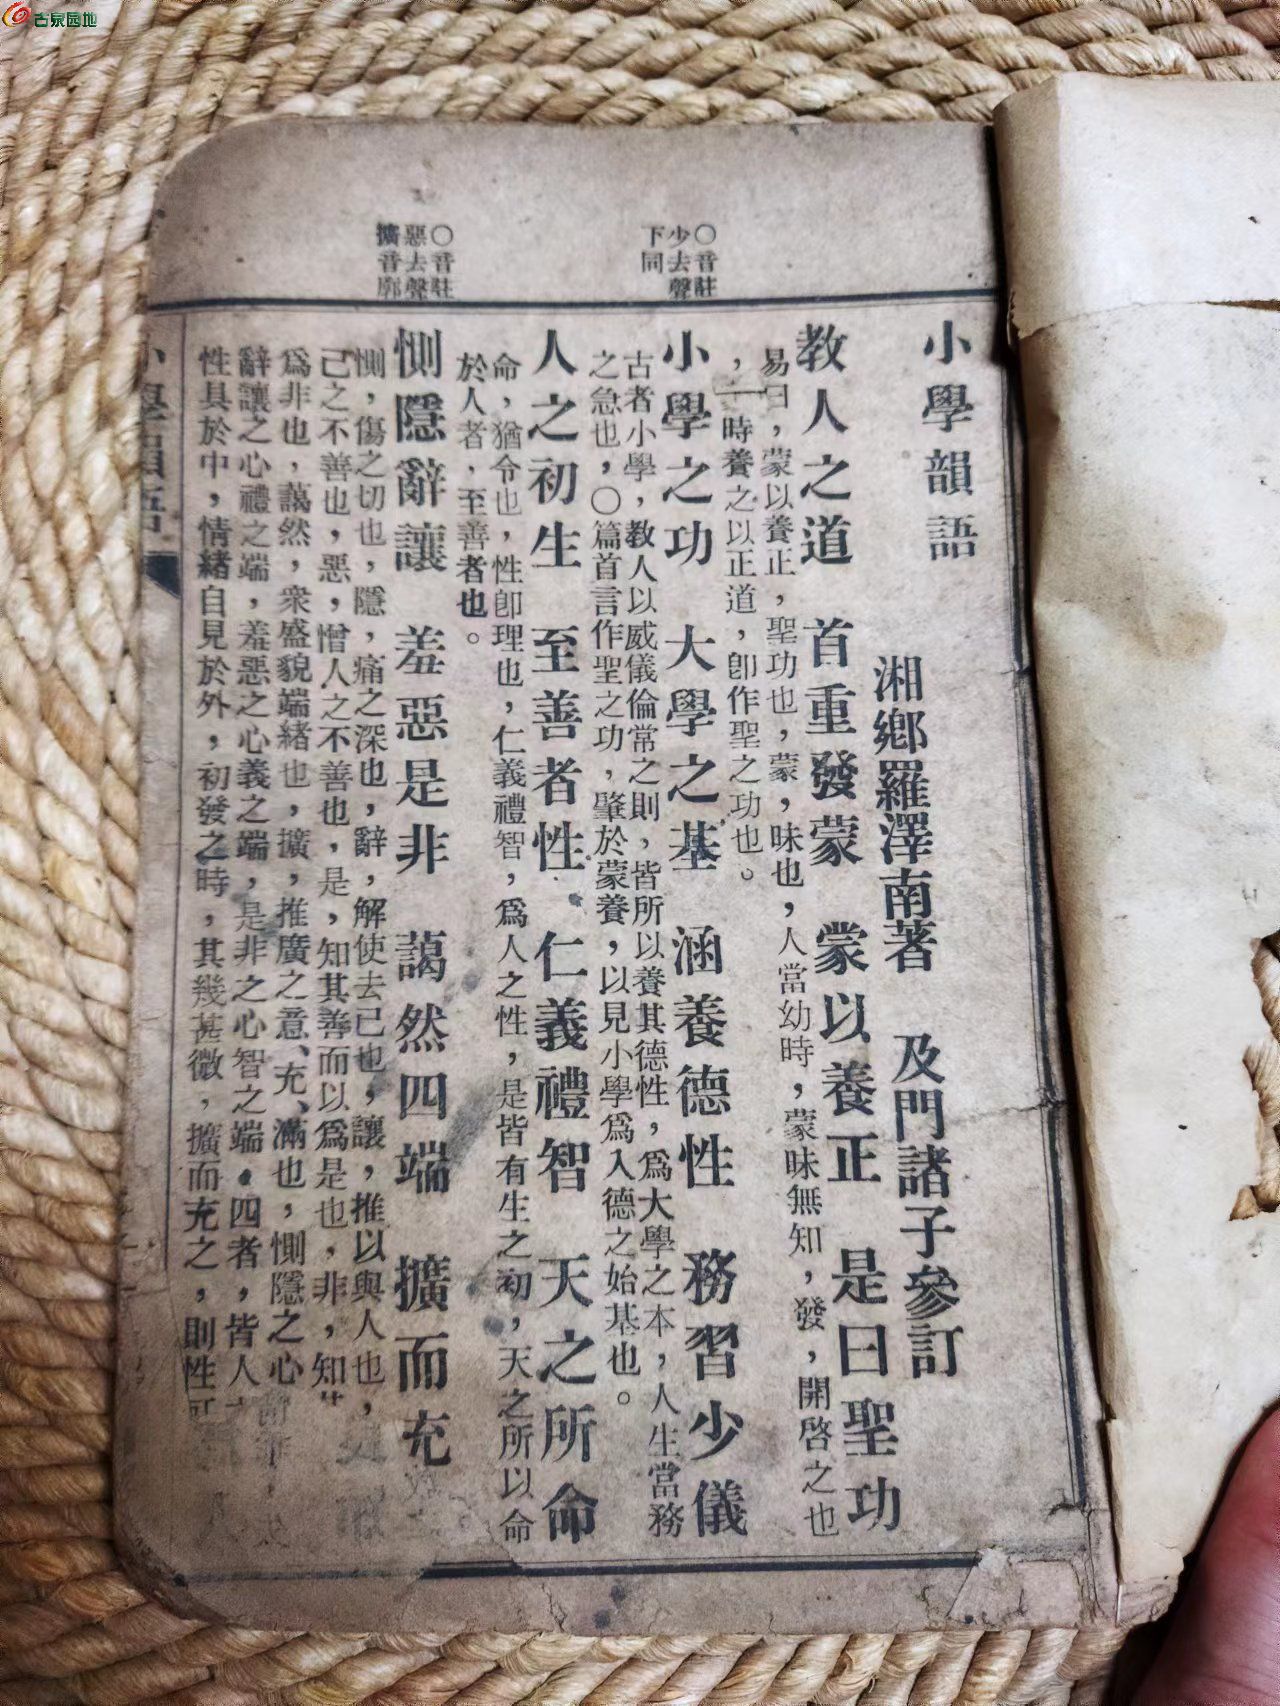 古泉园地
○音註
少去聲
下同
○音註
惡去聲
擴音廓
小學韻語
湘鄉羅澤南著 及門諸子參訂
教人之道 首重發蒙 蒙以養正 是曰聖功
易曰，蒙以養正，聖功也，蒙，昧也，人當幼時，蒙昧無知，發，開啓之也
，一時養之以正道，卽作聖之功也。
小學之功 大學之基 涵養德性 務習少儀
古者小學，教人以威儀倫常之則，皆所以養其德性，爲大學之本，人生當務
之急也，○篇首言作聖之功，肇於蒙養，以見小學爲入德之始基也。
人之初生 至善者性 仁義禮智 天之所命
命，猶令也，性卽理也，仁義禮智，爲人之性，是皆有生之初，天之所以命
於人者，至善者也。
惻隱辭讓 羞惡是非 藹然四端 擴而充
惻，傷之切也，隱，痛之深也，辭，解使去已也，讓，推以與人也，
己之不善也，惡，憎人之不善也，是，知其善而以爲是也，非，知
爲非也，藹然，衆盛貌端緒也，擴，推廣之意、充、滿也，惻隱之心
辭讓之心禮之端，羞惡之心義之端，是非之心智之端。四者，皆人
性具於中，情緒自見於外，初發之時，其幾甚微，擴而充之，則性